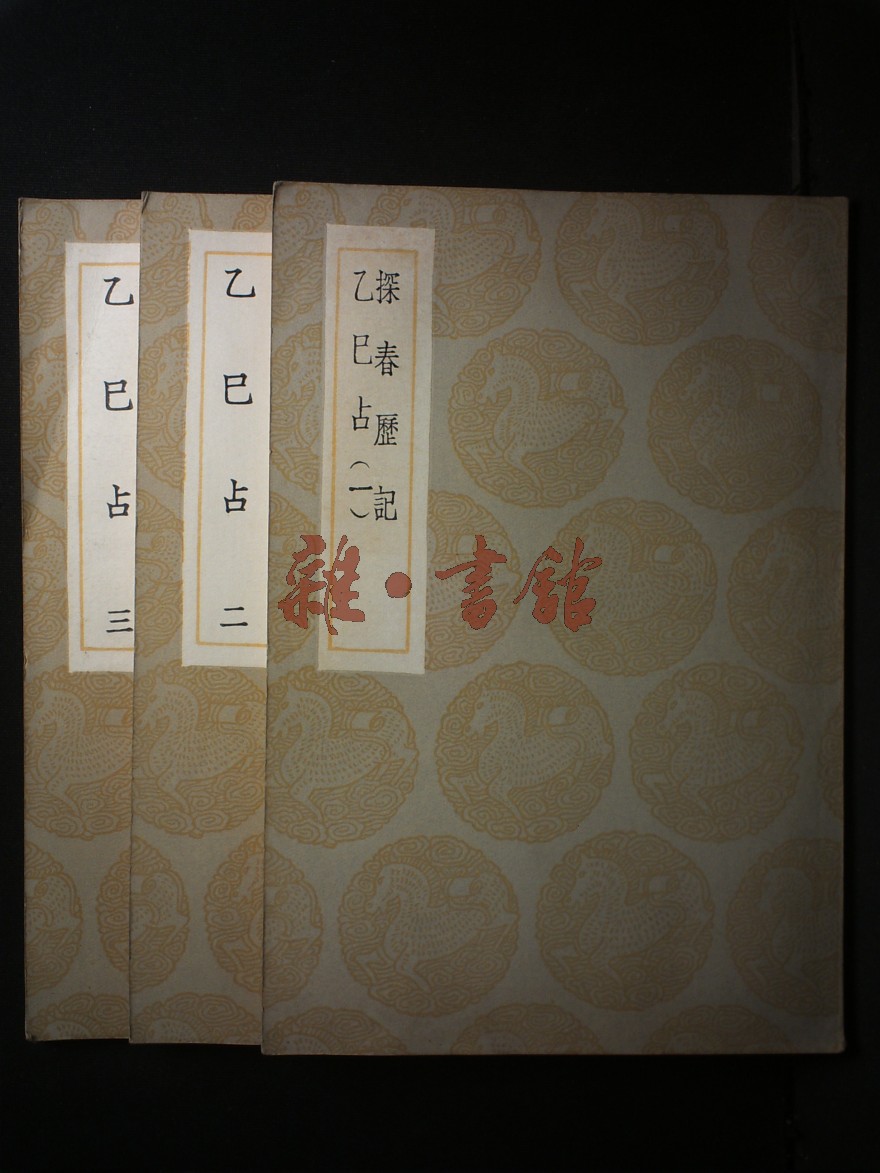 探春歷記
乙巳占(一)
乙巳占 二
乙巳占 三
雜·書館